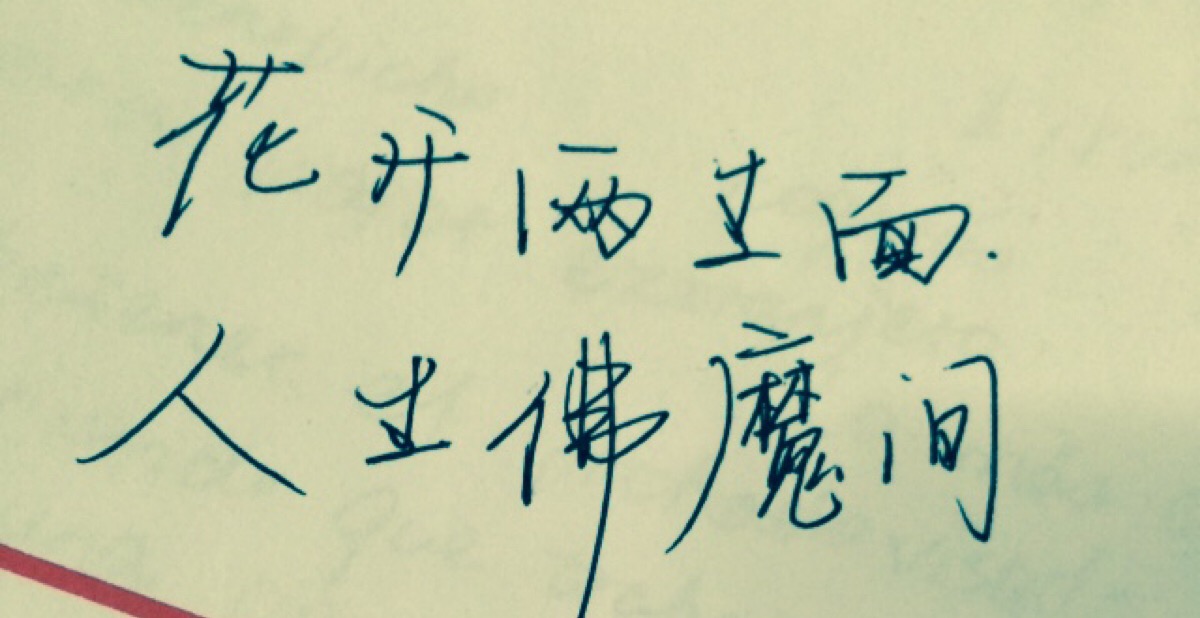 花开两生面.
人生佛魔间